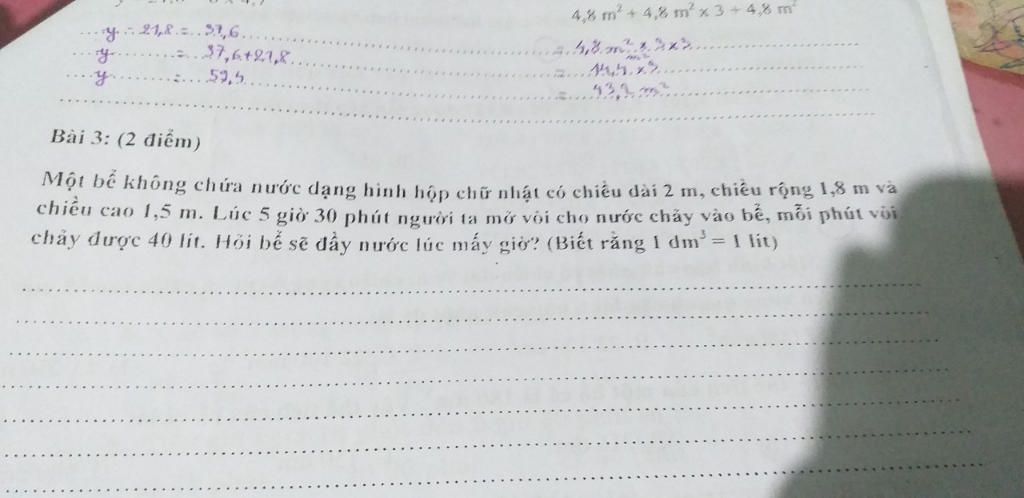 4,8 m² + 4,8 m² x 3 + 4,8 m²
y - 21,8 = 37,6
= 4,8 m² x 3 x 3
y = 37,6+21,8
= 14,4 x 3
m²
y = 59,4
= 43,2 m²
Bài 3: (2 điểm)
Một bể không chứa nước dạng hình hộp chữ nhật có chiều dài 2 m, chiều rộng 1,8 m và
chiều cao 1,5 m. Lúc 5 giờ 30 phút người ta mở vòi cho nước chảy vào bể, mỗi phút vòi
chảy được 40 lít. Hỏi bể sẽ đầy nước lúc mấy giờ? (Biết rằng 1 dm³ = 1 lít)